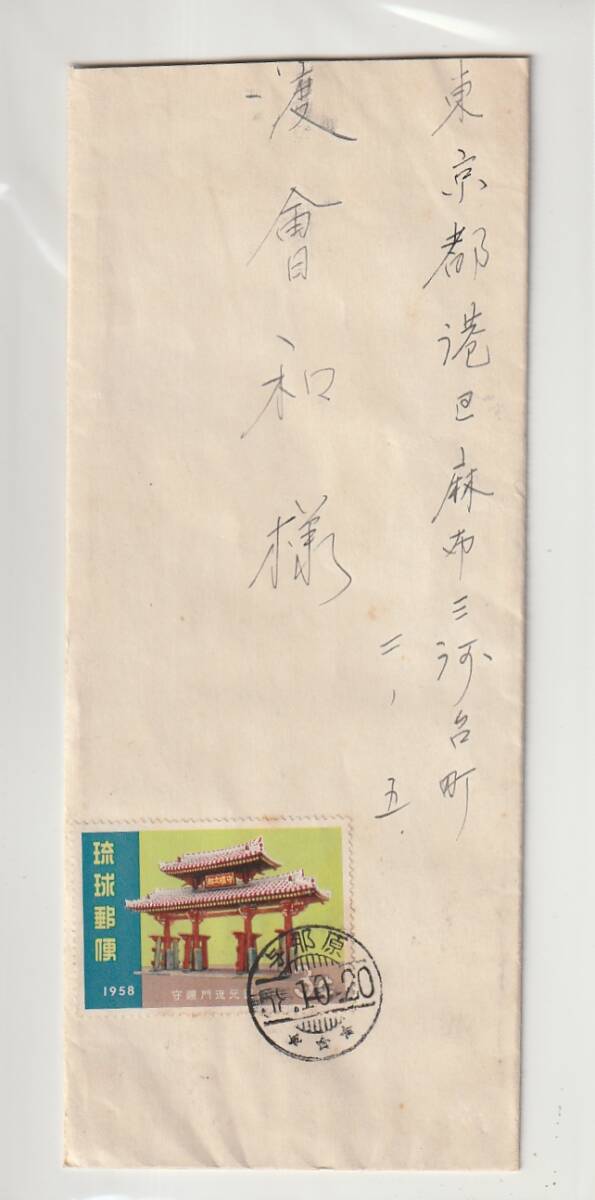 東京都港区麻布三河台町
二、五.
渡會和様
琉球郵便
1958
守禮門復元
与那原
.10.20